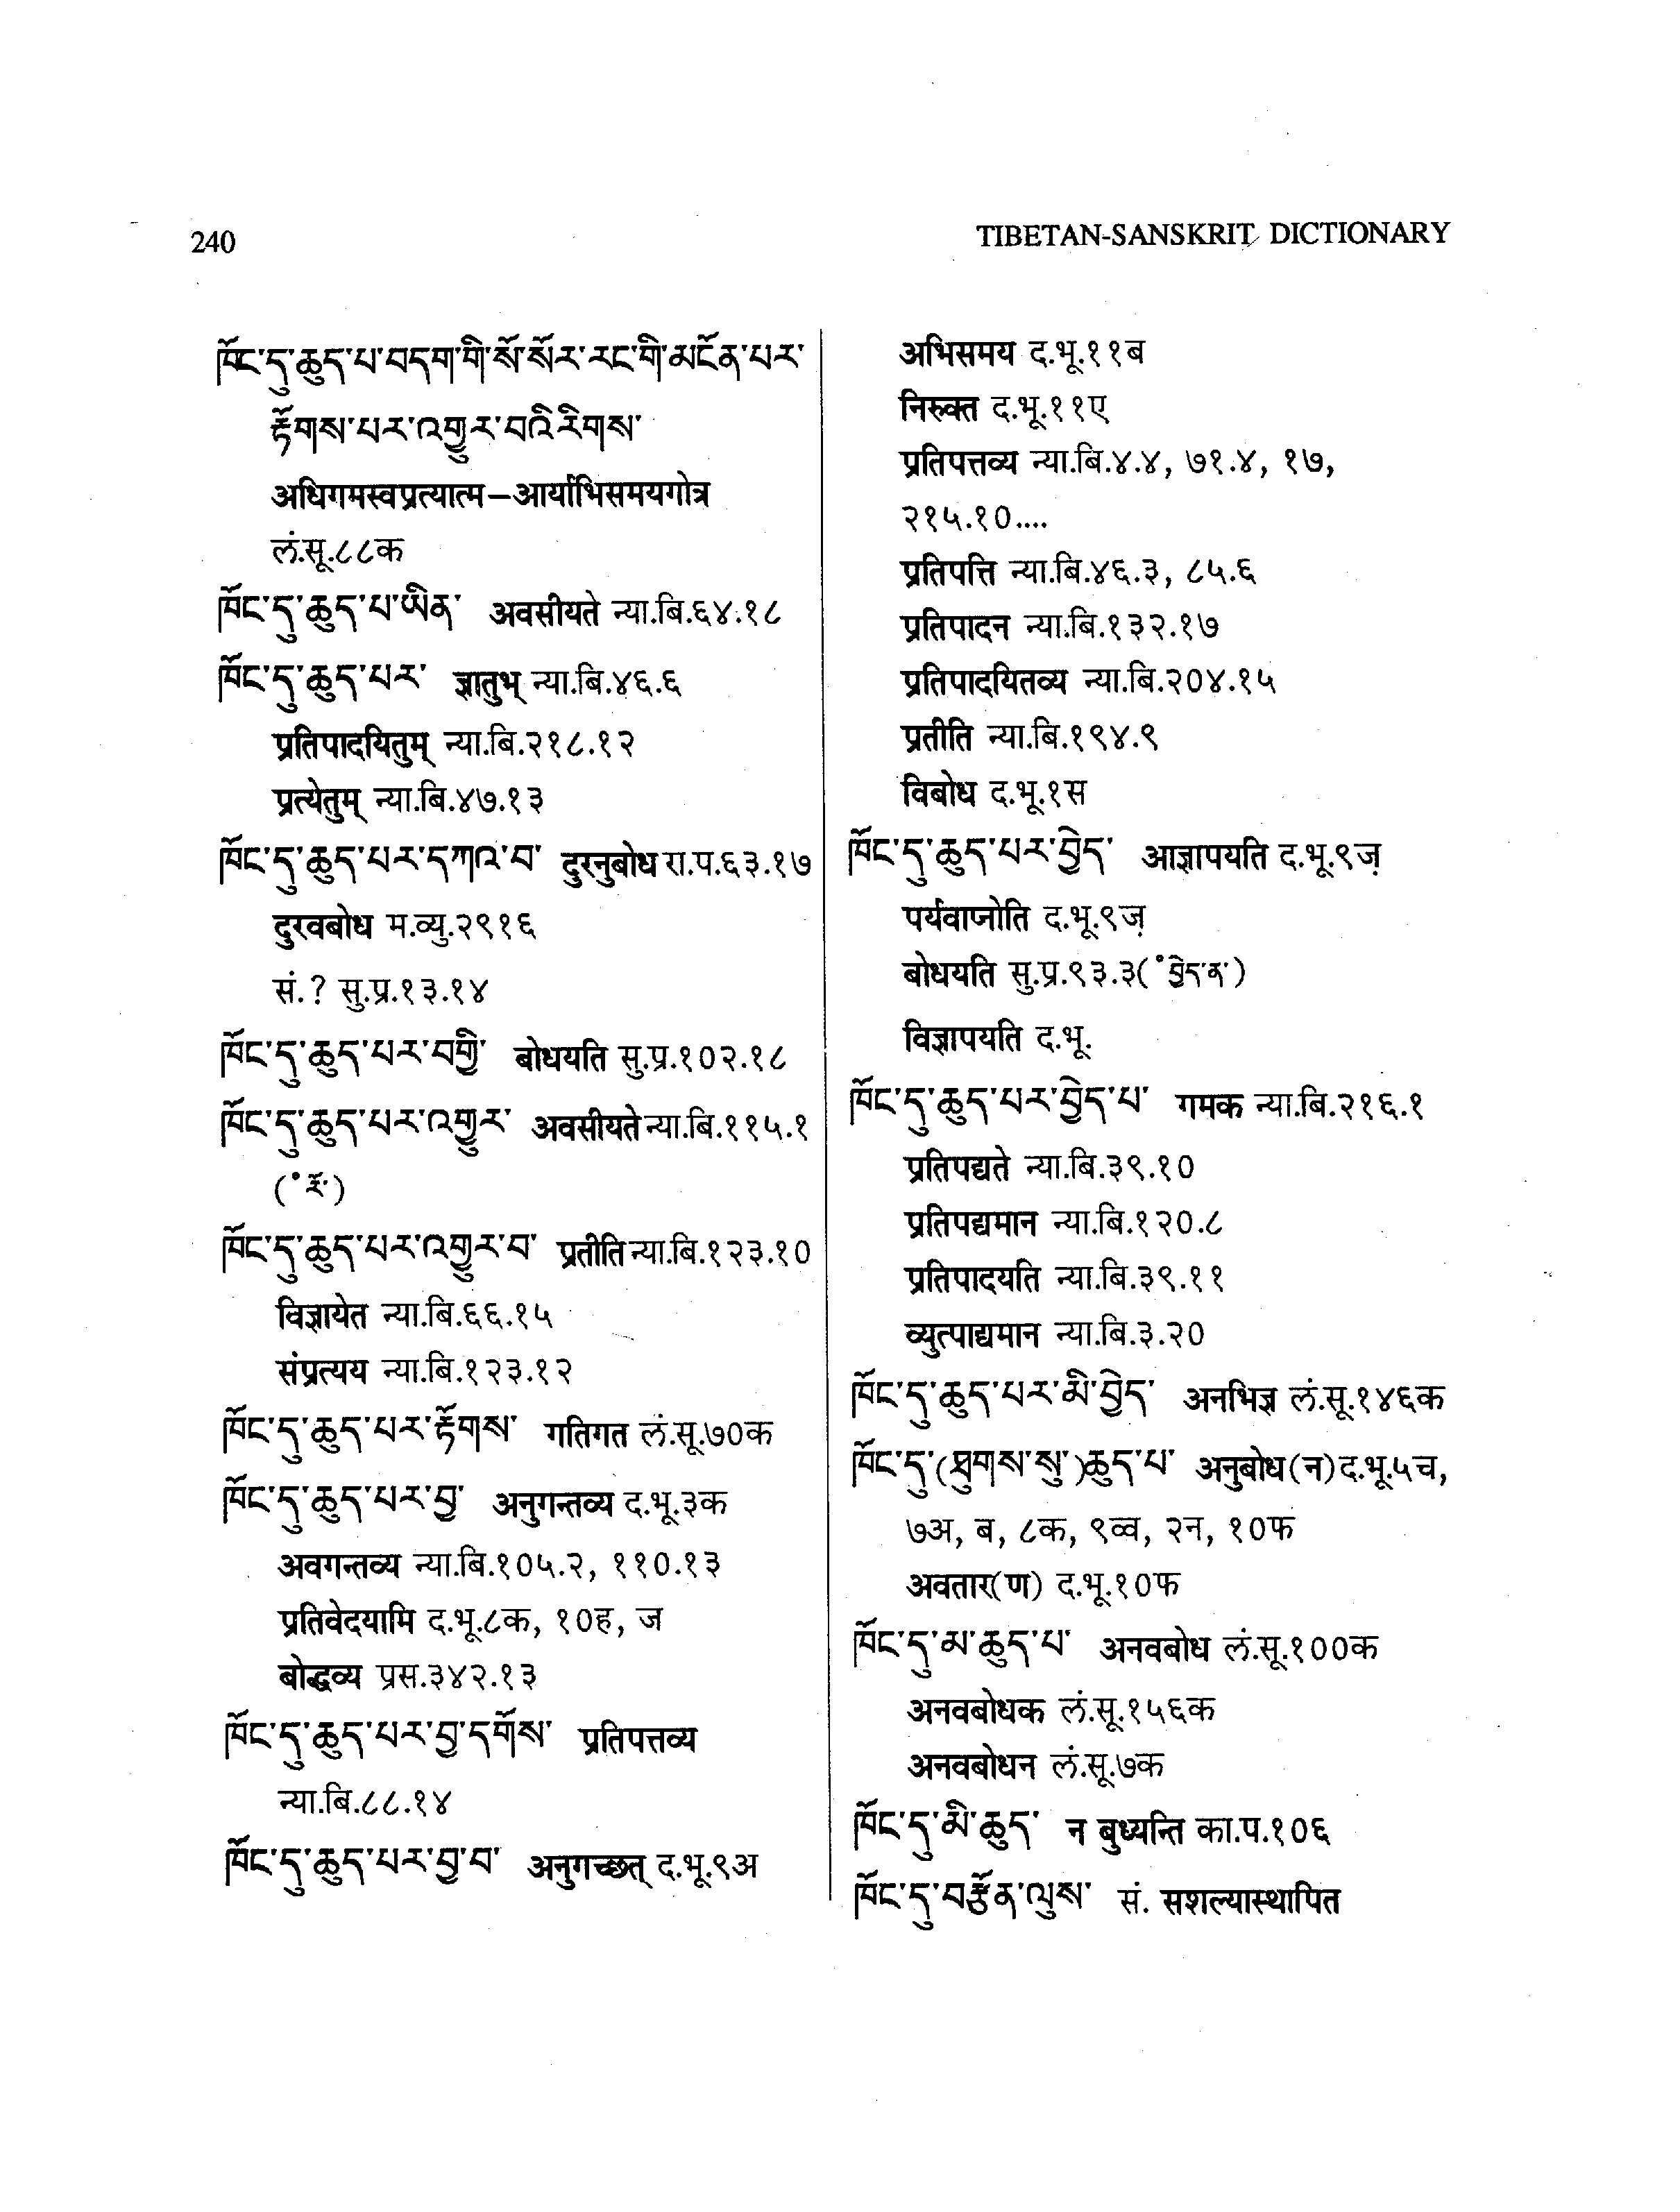 240
TIBETAN-SANSKRIT DICTIONARY
ཁོང་དུ་ཆུད་པ་བདག་གི་སོ་སོར་རང་གི་མངོན་པར་
རྟོགས་པར་འགྱུར་བའི་རིགས་
अधिगमस्वप्रत्यात्म–आर्याभिसमयगोत्र
लं.सू.८८क
ཁོང་དུ་ཆུད་པ་ཡིན་ अवसीयते न्या.बि.६४.१८
ཁོང་དུ་ཆུད་པར་ ज्ञातुभ् न्या.बि.४६.६
प्रतिपादयितुम् न्या.बि.२१८.१२
प्रत्येतुम् न्या.बि.४७.१३
ཁོང་དུ་ཆུད་པར་དཀའ་བ་ दुरनुबोध रा.प.६३.१७
दुरवबोध म.व्यु.२९१६
सं.? सु.प्र.१३.१४
ཁོང་དུ་ཆུད་པར་བགྱི་ बोधयति सु.प्र.१०२.१८
ཁོང་དུ་ཆུད་པར་འགྱུར་ अवसीयते न्या.बि.११५.१
(॰རོ་)
ཁོང་དུ་ཆུད་པར་འགྱུར་བ་ प्रतीति न्या.बि.१२३.१०
विज्ञायेत न्या.बि.६६.१५
संप्रत्यय न्या.बि.१२३.१२
ཁོང་དུ་ཆུད་པར་རྟོགས་ गतिगत लं.सू.७०क
ཁོང་དུ་ཆུད་པར་བྱ་ अनुगन्तव्य द.भू.३क
अवगन्तव्य न्या.बि.१०५.२, ११०.१३
प्रतिवेदयामि द.भू.८क, १०ह, ज
बोद्धव्य प्रस.३४२.१३
ཁོང་དུ་ཆུད་པར་བྱ་དགོས་ प्रतिपत्तव्य
न्या.बि.८८.१४
ཁོང་དུ་ཆུད་པར་བྱ་བ་ अनुगच्छत् द.भू.९अ
अभिसमय द.भू.११ब
निरुक्त द.भू.११ए
प्रतिपत्तव्य न्या.बि.४.४, ७१.४, १७,
२१५.१०....
प्रतिपत्ति न्या.बि.४६.३, ८५.६
प्रतिपादन न्या.बि.१३२.१७
प्रतिपादयितव्य न्या.बि.२०४.१५
प्रतीति न्या.बि.१९४.९
विबोध द.भू.१स
ཁོང་དུ་ཆུད་པར་བྱེད་ आज्ञापयति द.भू.९ज़
पर्यवाप्नोति द.भू.९ज़
बोधयति सु.प्र.९३.३(॰བྱེད་ན་)
विज्ञापयति द.भू.
ཁོང་དུ་ཆུད་པར་བྱེད་པ་ गमक न्या.बि.२१६.१
प्रतिपद्यते न्या.बि.३९.१०
प्रतिपद्यमान न्या.बि.१२०.८
प्रतिपादयति न्या.बि.३९.११
व्युत्पाद्यमान न्या.बि.३.२०
ཁོང་དུ་ཆུད་པར་མི་བྱེད་ अनभिज्ञ लं.सू.१४६क
ཁོང་དུ་(ཐུགས་སུ་)ཆུད་པ་ अनुबोध(न)द.भू.५च,
७अ, ब, ८क, ९व्व, २न, १०फ
अवतार(ण) द.भू.१०फ
ཁོང་དུ་མ་ཆུད་པ་ अनवबोध लं.सू.१००क
अनवबोधक लं.सू.१५६क
अनवबोधन लं.सू.७क
ཁོང་དུ་མི་ཆུད་ न बुध्यन्ति का.प.१०६
ཁོང་དུ་བརྩོན་ལུས་ सं. सशल्यास्थापित